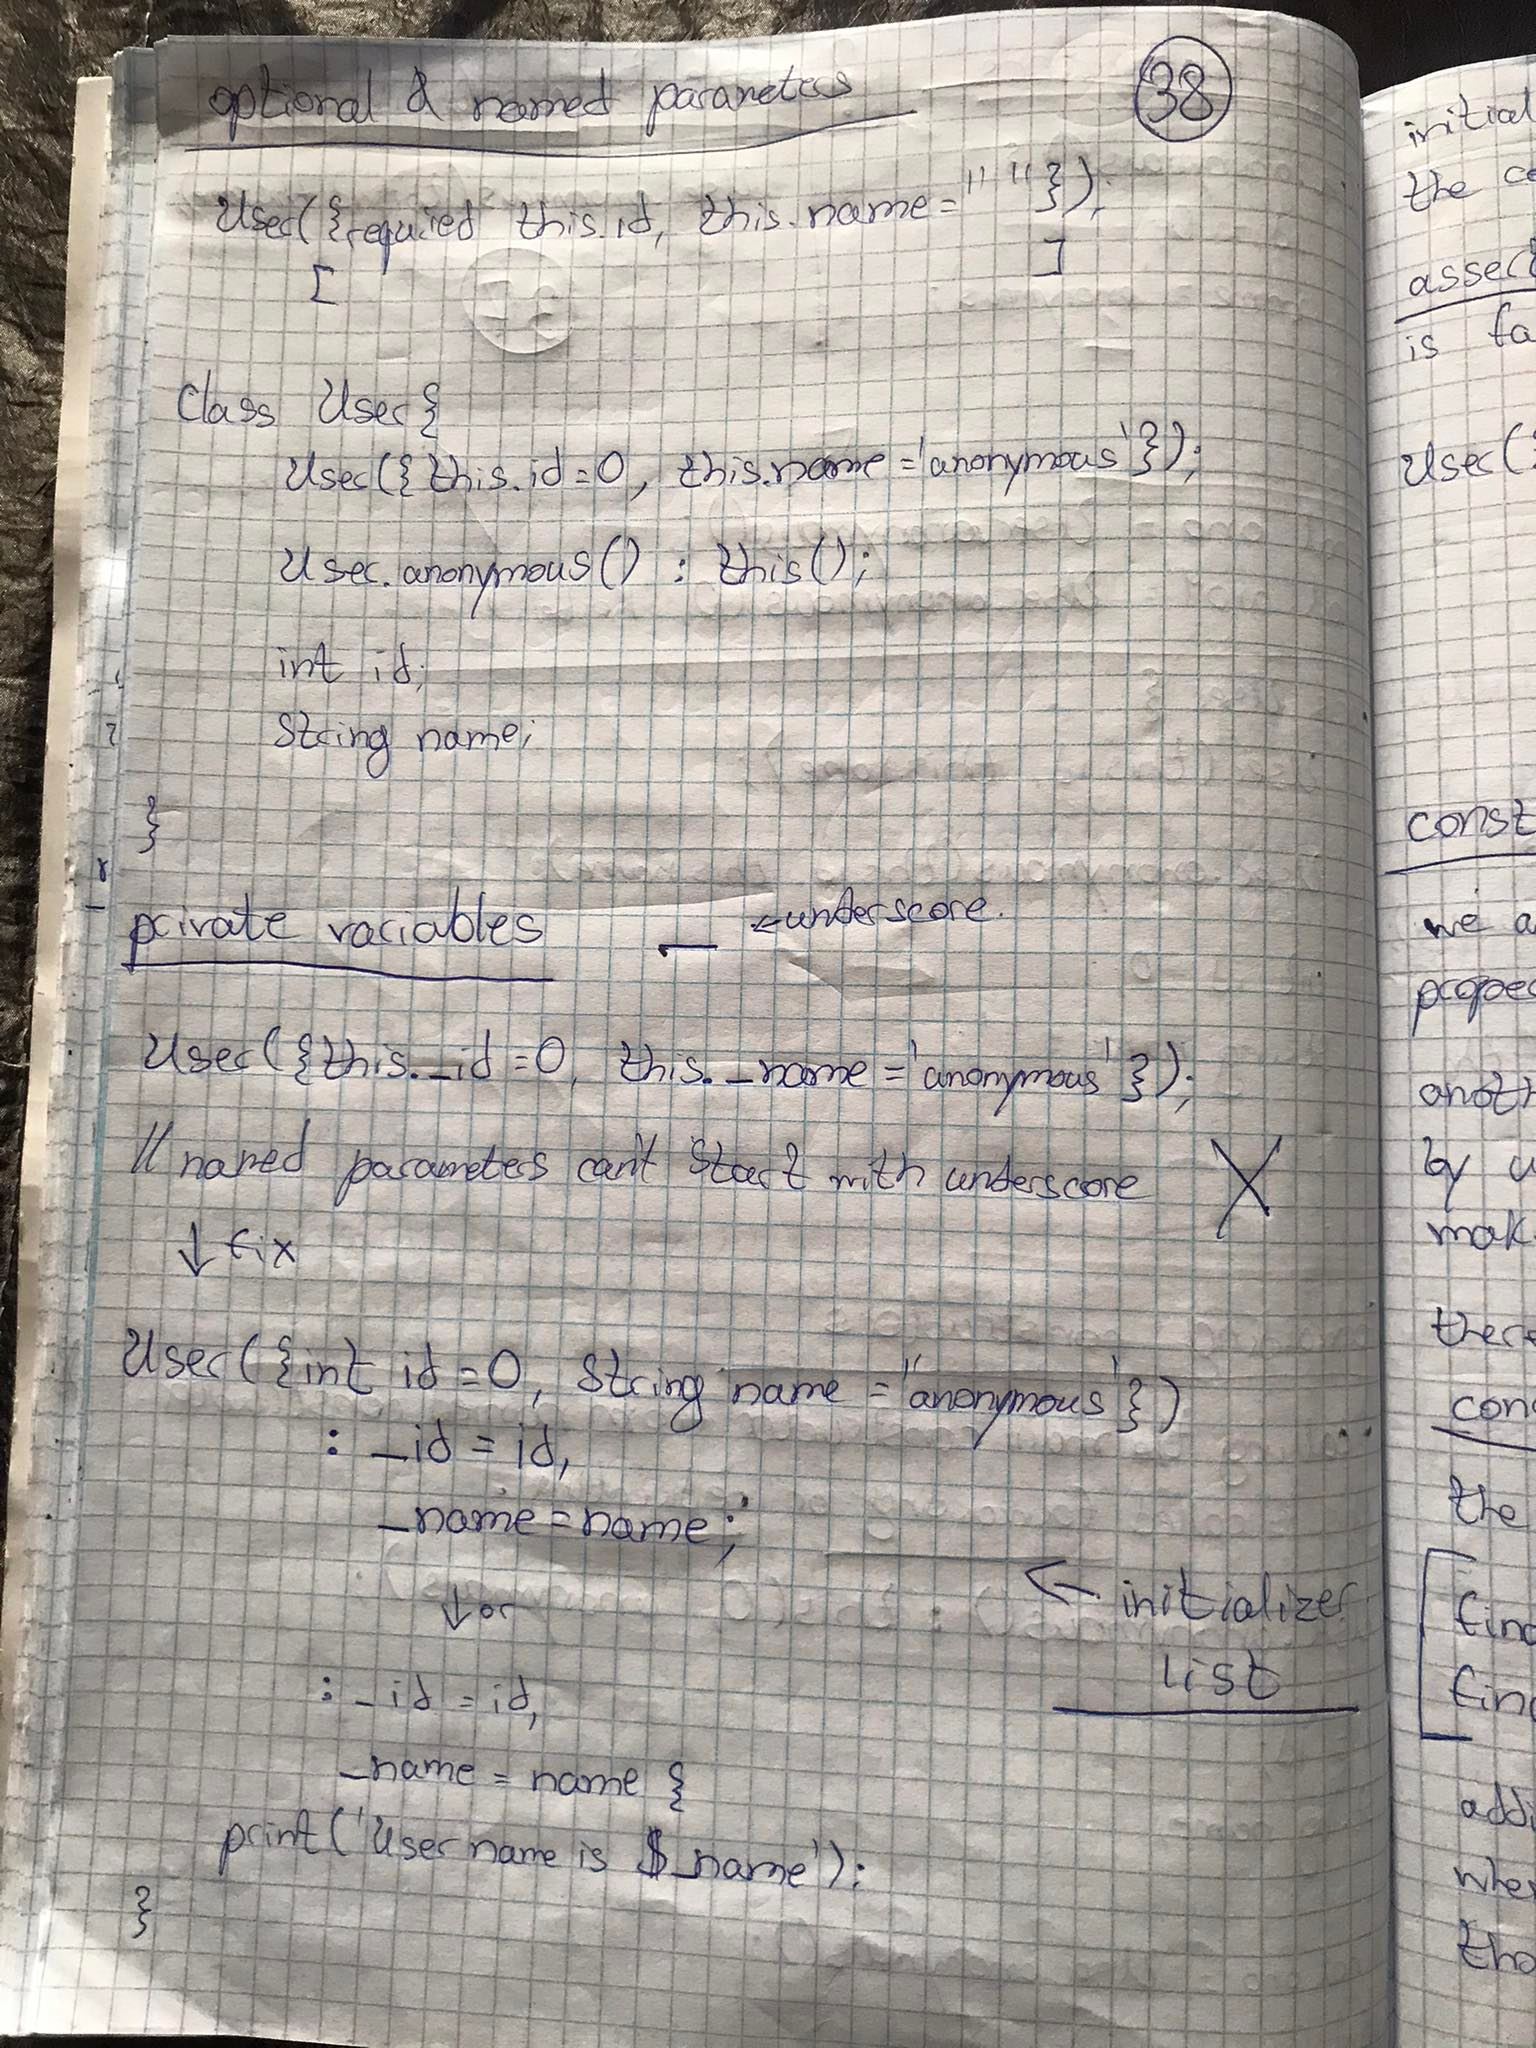 optional & named parameters
38
User({required this.id, this.name = " " });
[ ]
Class User{
User({this.id=0, this.name='anonymous'});
User.anonymous() : this();
int id;
String name;
}
private variables _ ← underscore.
User({this._id=0, this._name='anonymous'});
// named parameters can't start with underscore X
↓ fix
User({int id=0, String name="anonymous'})
: _id = id,
_name = name;
↓ or
← initializer
list
: _id = id,
_name = name {
print('User name is $_name');
}
initial
the
is
User({
const
we
by
the